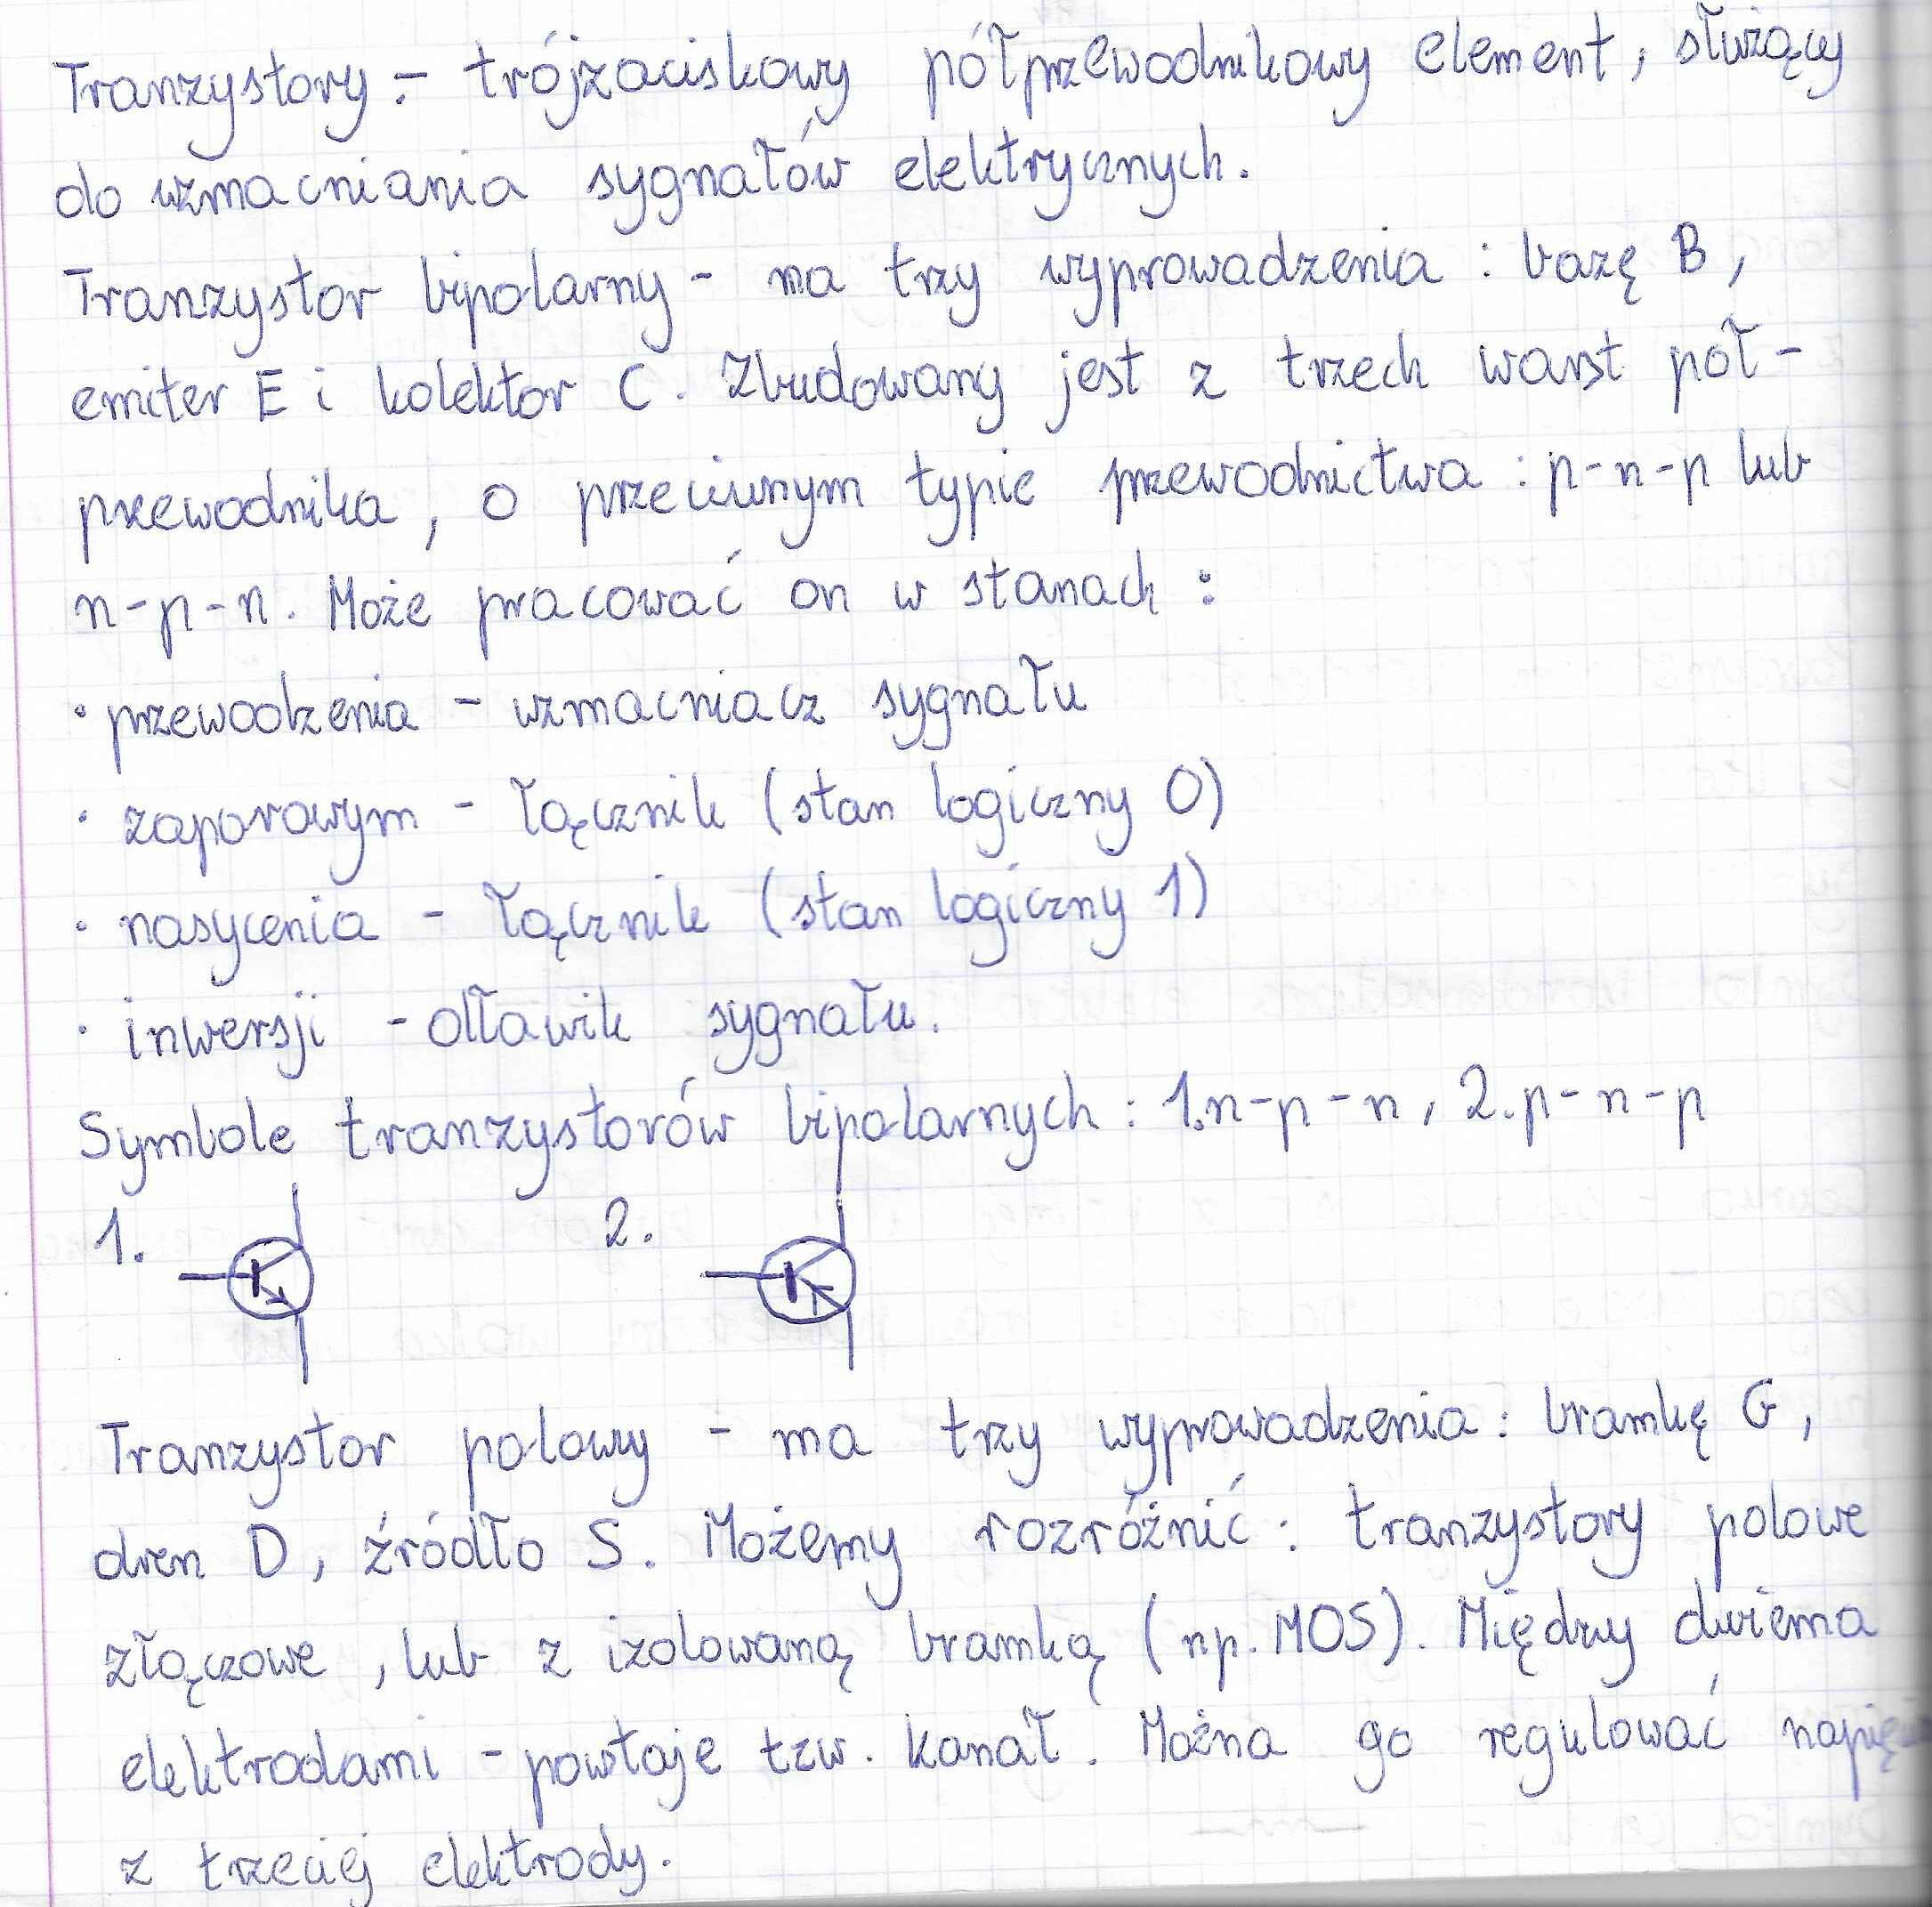 Tranzystory - trójzaciskowy półprzewodnikowy element, służący
do wzmacniania sygnałów elektrycznych.
Tranzystor bipolarny - ma trzy wyprowadzenia : bazę B,
emiter E i kolektor C. Zbudowany jest z trzech warst pół-
przewodnika, o przeciwnym typie przewodnictwa : p-n-p lub
n-p-n. Może pracować on w stanach :
• przewodzenia - wzmacniacz sygnału
• zaporowym - łącznik (stan logiczny 0)
• nasycenia - łącznik (stan logiczny 1)
• inwersji - dławik sygnału.
Symbole tranzystorów bipolarnych : 1. n-p-n, 2. p-n-p
1. 2.
Tranzystor polowy - ma trzy wyprowadzenia : bramkę G,
dren D, źródło S. Możemy rozróżnić : tranzystory polowe
złączowe, lub z izolowaną bramką (np. MOS). Między dwiema
elektrodami - powstaje tzw. kanał. Można go regulować
z trzeciej elektrody.